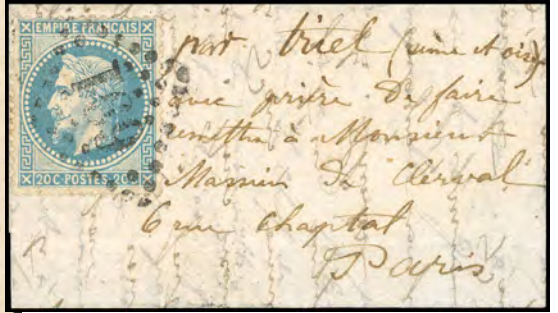 EMPIRE FRANÇAIS
20 C·POSTES·20 C
par triel (seine et oise)
avec prière de faire
remettre à Monsieur
de Clerval
6 rue chaptal
Paris